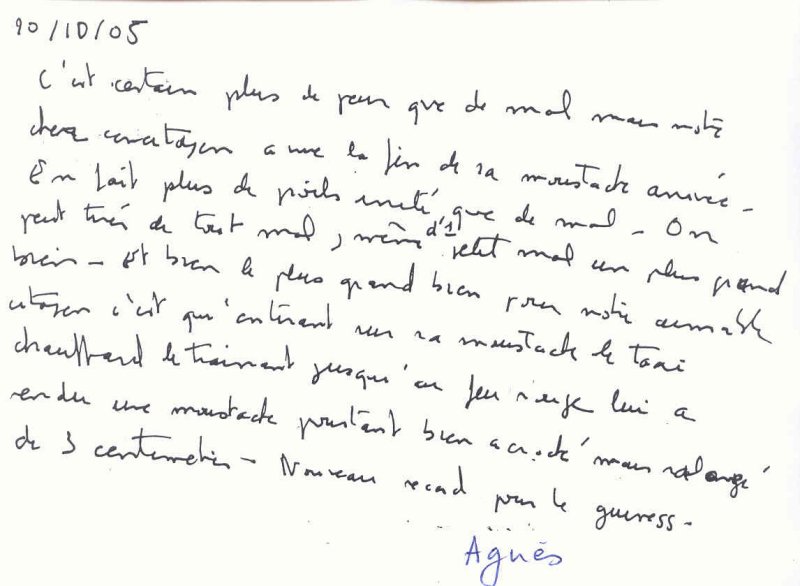 20/10/05
C'est certain plus de peur que de mal mais notre
cher concitoyen a vue la fin de sa moustache arrivée -
En fait plus de poils que de mal - On
peut tirer de tout mal, même d'1 petit mal un plus grand
bien - Et bien le plus grand bien pour notre aimable
citoyen c'est qu'en tirant sur sa moustache le taxi
chauffard le trainant jusqu'au feu rouge lui a
rendu une moustache pourtant bien acroché mais ralongé
de 3 centimetres - Nouveau record pour le guiness -
Agnès